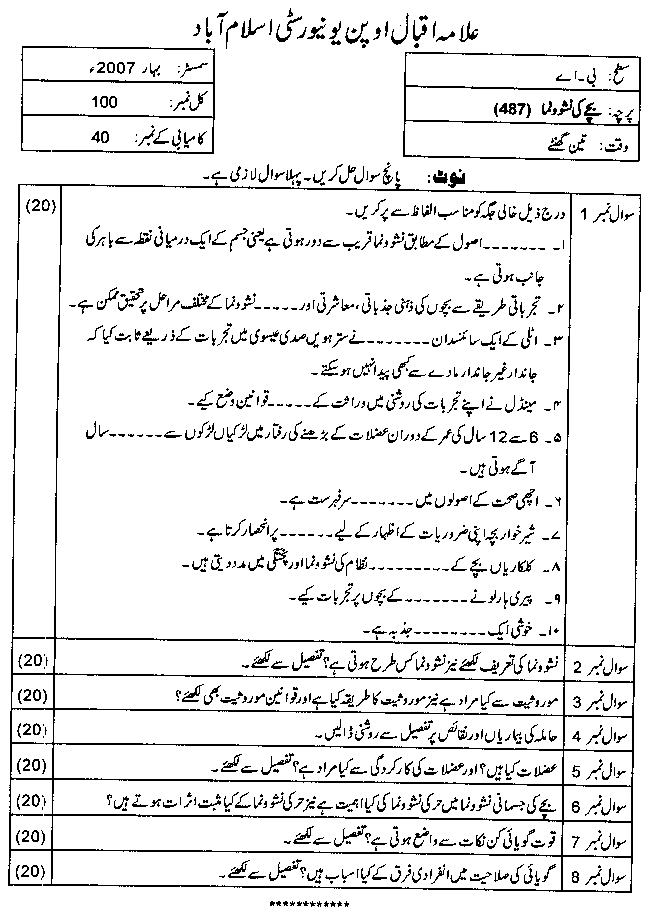 علامہ اقبال اوپن یونیورسٹی اسلام آباد
سطح: بی۔اے
پرچہ: بچے کی نشوونما (487)
وقت: تین گھنٹے
سمسٹر: بہار 2007ء
کل نمبر: 100
کامیابی کے نمبر: 40
نوٹ: پانچ سوال حل کریں۔ پہلا سوال لازمی ہے۔
سوال نمبر 1 درج ذیل خالی جگہ کو مناسب الفاظ سے پر کریں۔ (20)
۱۔ ۔۔۔۔۔۔۔ اصول کے مطابق نشوونما قریب سے دور ہوتی ہے یعنی جسم کے ایک درمیانی نقطہ سے باہر کی
جانب ہوتی ہے۔
۲۔ تجرباتی طریقے سے بچوں کی ذہنی جذباتی، معاشرتی اور ۔۔۔۔۔ نشوونما کے مختلف مراحل پر تحقیق ممکن ہے۔
۳۔ اٹلی کے ایک سائنسدان ۔۔۔۔۔۔۔۔ نے سترہویں صدی عیسوی میں تجربات کے ذریعے ثابت کیا کہ
جاندار غیر جاندار مادے سے کبھی پیدا نہیں ہو سکتے۔
۴۔ مینڈل نے اپنے تجربات کی روشنی میں وراثت کے ۔۔۔۔۔ قوانین وضع کیے۔
۵۔ 6 سے 12 سال کی عمر کے دوران عضلات کے بڑھنے کی رفتار میں لڑکیاں لڑکوں سے ۔۔۔۔۔۔ سال
آگے ہوتی ہیں۔
۶۔ اچھی صحت کے اصولوں میں ۔۔۔۔۔۔۔ سرفہرست ہے۔
۷۔ شیرخوار بچہ اپنی ضروریات کے اظہار کے لیے ۔۔۔۔۔۔ پر انحصار کرتا ہے۔
۸۔ کلکاریاں بچے کے ۔۔۔۔۔۔۔۔۔ نظام کی نشوونما اور پختگی میں مدد دیتی ہیں۔
۹۔ پیری ہارلو نے ۔۔۔۔۔۔۔۔ کے بچوں پر تجربات کیے۔
۱۰۔ خوشی ایک ۔۔۔۔۔۔۔۔ جذبہ ہے۔
سوال نمبر 2 نشوونما کی تعریف لکھئے نیز نشوونما کس طرح ہوتی ہے؟ تفصیل سے لکھئے۔ (20)
سوال نمبر 3 موروثیت سے کیا مراد ہے نیز موروثیت کا طریقہ کیا ہے اور قوانین موروثیت بھی لکھئے؟ (20)
سوال نمبر 4 حاملہ کی بیماریاں اور نقائص پر تفصیل سے روشنی ڈالیں۔ (20)
سوال نمبر 5 عضلات کیا ہیں؟ اور عضلات کی کارکردگی سے کیا مراد ہے؟ تفصیل سے لکھئے۔ (20)
سوال نمبر 6 بچے کی جسمانی نشوونما میں حرکی نشوونما کی کیا اہمیت ہے نیز حرکی نشوونما کے کیا مثبت اثرات ہوتے ہیں؟ (20)
سوال نمبر 7 قوت گویائی کن نکات سے واضع ہوتی ہے؟ تفصیل سے لکھئے۔ (20)
سوال نمبر 8 گویائی کی صلاحیت میں انفرادی فرق کے کیا اسباب ہیں؟ تفصیل سے لکھئے۔ (20)
************